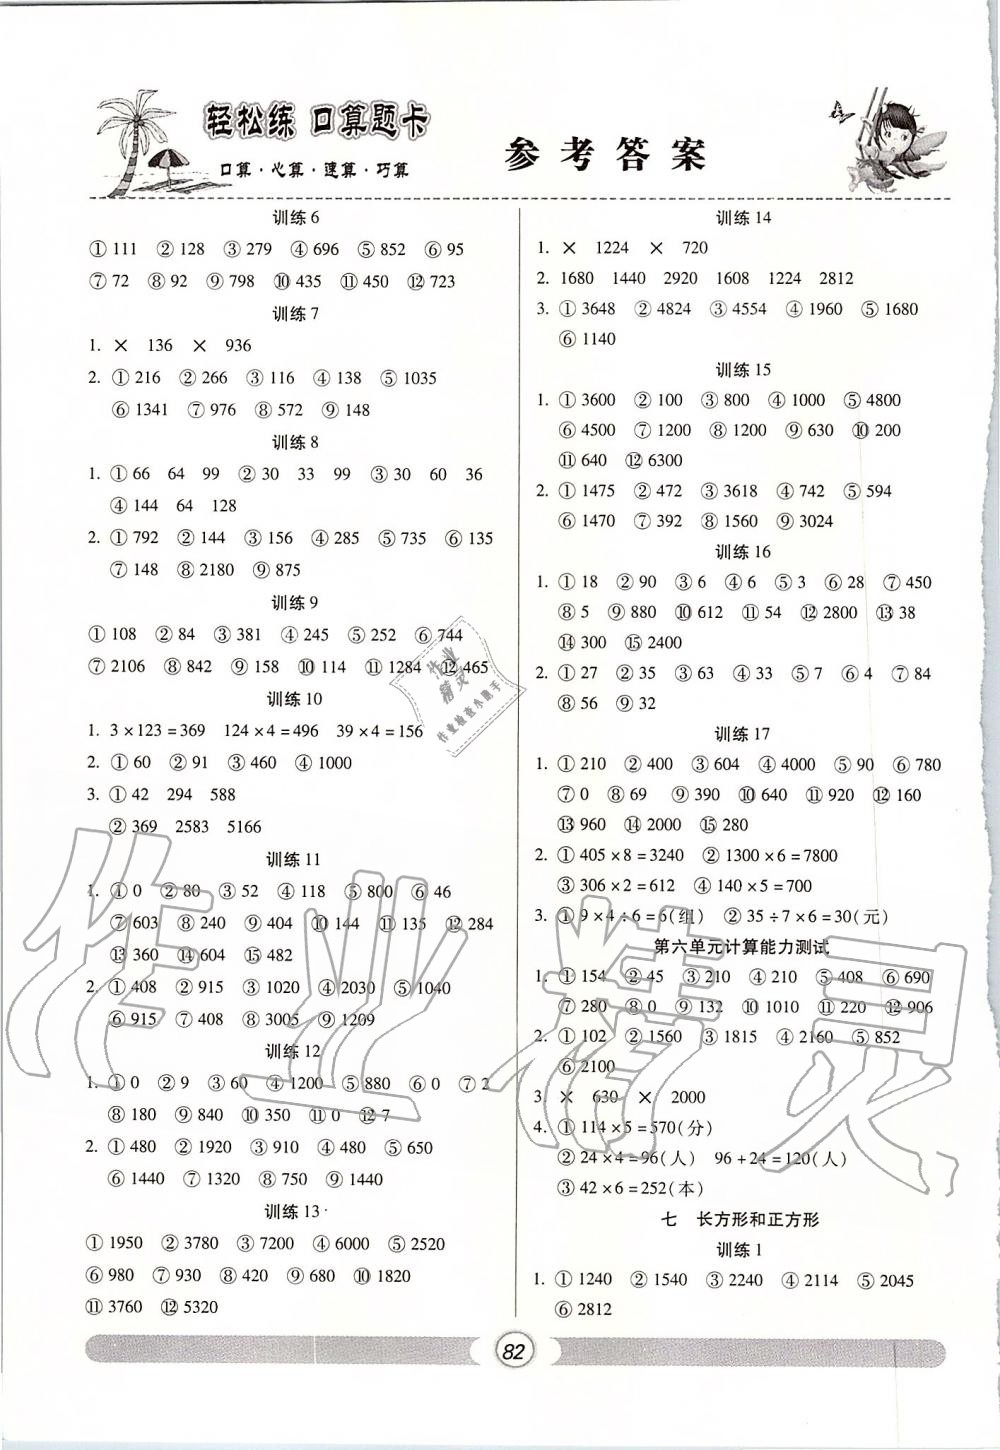 轻松练 口算题卡
口算·心算·速算·巧算
参考答案
训练6
①111 ②128 ③279 ④696 ⑤852 ⑥95
⑦72 ⑧92 ⑨798 ⑩435 ⑪450 ⑫723
训练7
1. × 136 × 936
2. ①216 ②266 ③116 ④138 ⑤1035
⑥1341 ⑦976 ⑧572 ⑨148
训练8
1. ①66 64 99 ②30 33 99 ③30 60 36
④144 64 128
2. ①792 ②144 ③156 ④285 ⑤735 ⑥135
⑦148 ⑧2180 ⑨875
训练9
①108 ②84 ③381 ④245 ⑤252 ⑥744
⑦2106 ⑧842 ⑨158 ⑩114 ⑪1284 ⑫465
训练10
1. 3×123=369 124×4=496 39×4=156
2. ①60 ②91 ③460 ④1000
3. ①42 294 588
②369 2583 5166
训练11
1. ①0 ②80 ③52 ④118 ⑤800 ⑥46
⑦603 ⑧240 ⑨404 ⑩144 ⑪135 ⑫284
⑬360 ⑭604 ⑮482
2. ①408 ②915 ③1020 ④2030 ⑤1040
⑥915 ⑦408 ⑧3005 ⑨1209
训练12
1. ①0 ②9 ③60 ④1200 ⑤880 ⑥0 ⑦2
⑧180 ⑨840 ⑩350 ⑪0 ⑫7
2. ①480 ②1920 ③910 ④480 ⑤650
⑥1440 ⑦1320 ⑧750 ⑨1440
训练13
①1950 ②3780 ③7200 ④6000 ⑤2520
⑥980 ⑦930 ⑧420 ⑨680 ⑩1820
⑪3760 ⑫5320
训练14
1. × 1224 × 720
2. 1680 1440 2920 1608 1224 2812
3. ①3648 ②4824 ③4554 ④1960 ⑤1680
⑥1140
训练15
1. ①3600 ②100 ③800 ④1000 ⑤4800
⑥4500 ⑦1200 ⑧1200 ⑨630 ⑩200
⑪640 ⑫6300
2. ①1475 ②472 ③3618 ④742 ⑤594
⑥1470 ⑦392 ⑧1560 ⑨3024
训练16
1. ①18 ②90 ③6 ④6 ⑤3 ⑥28 ⑦450
⑧5 ⑨880 ⑩612 ⑪54 ⑫2800 ⑬38
⑭300 ⑮2400
2. ①27 ②35 ③63 ④33 ⑤7 ⑥4 ⑦84
⑧56 ⑨32
训练17
1. ①210 ②400 ③604 ④4000 ⑤90 ⑥780
⑦0 ⑧69 ⑨390 ⑩640 ⑪920 ⑫160
⑬960 ⑭2000 ⑮280
2. ①405×8=3240 ②1300×6=7800
③306×2=612 ④140×5=700
3. ①9×4÷6=6(组) ②35÷7×6=30(元)
第六单元计算能力测试
1. ①154 ②45 ③210 ④210 ⑤408 ⑥690
⑦280 ⑧0 ⑨132 ⑩1010 ⑪220 ⑫906
2. ①102 ②1560 ③1815 ④2160 ⑤852
⑥2100
3 × 630 × 2000
4. ①114×5=570(分)
②24×4=96(人) 96+24=120(人)
③42×6=252(本)
七 长方形和正方形
训练1
1. ①1240 ②1540 ③2240 ④2114 ⑤2045
⑥2812
82
作业精灵
作业
精灵
作业检查小助手